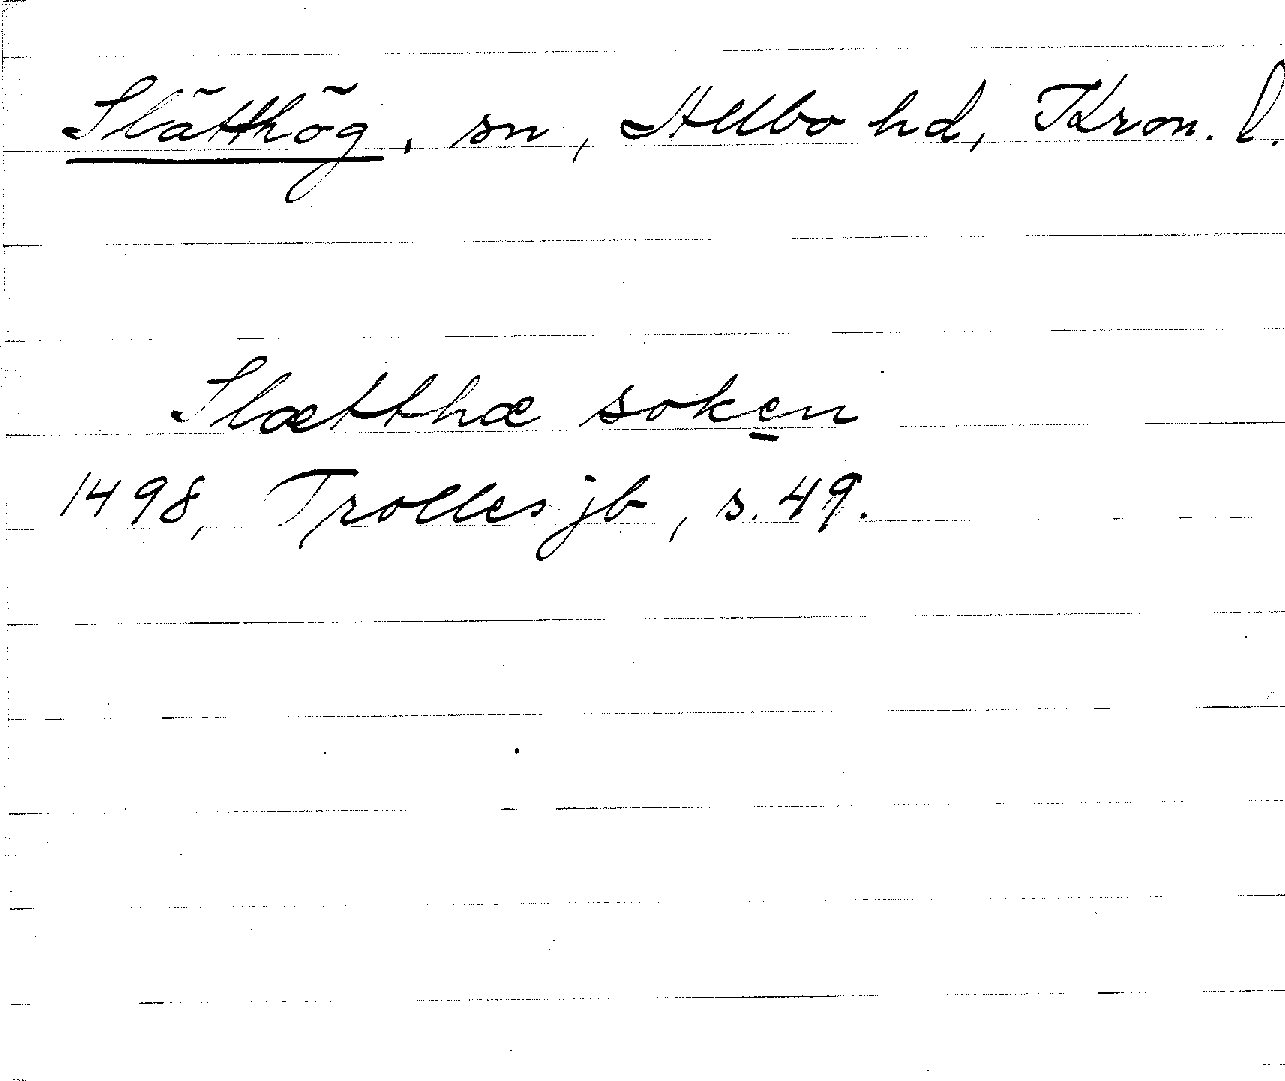 Slätthög, sn, Allbo hd, Kron. l.
Slætthæ soken
1498, Trolles jb, s. 49.